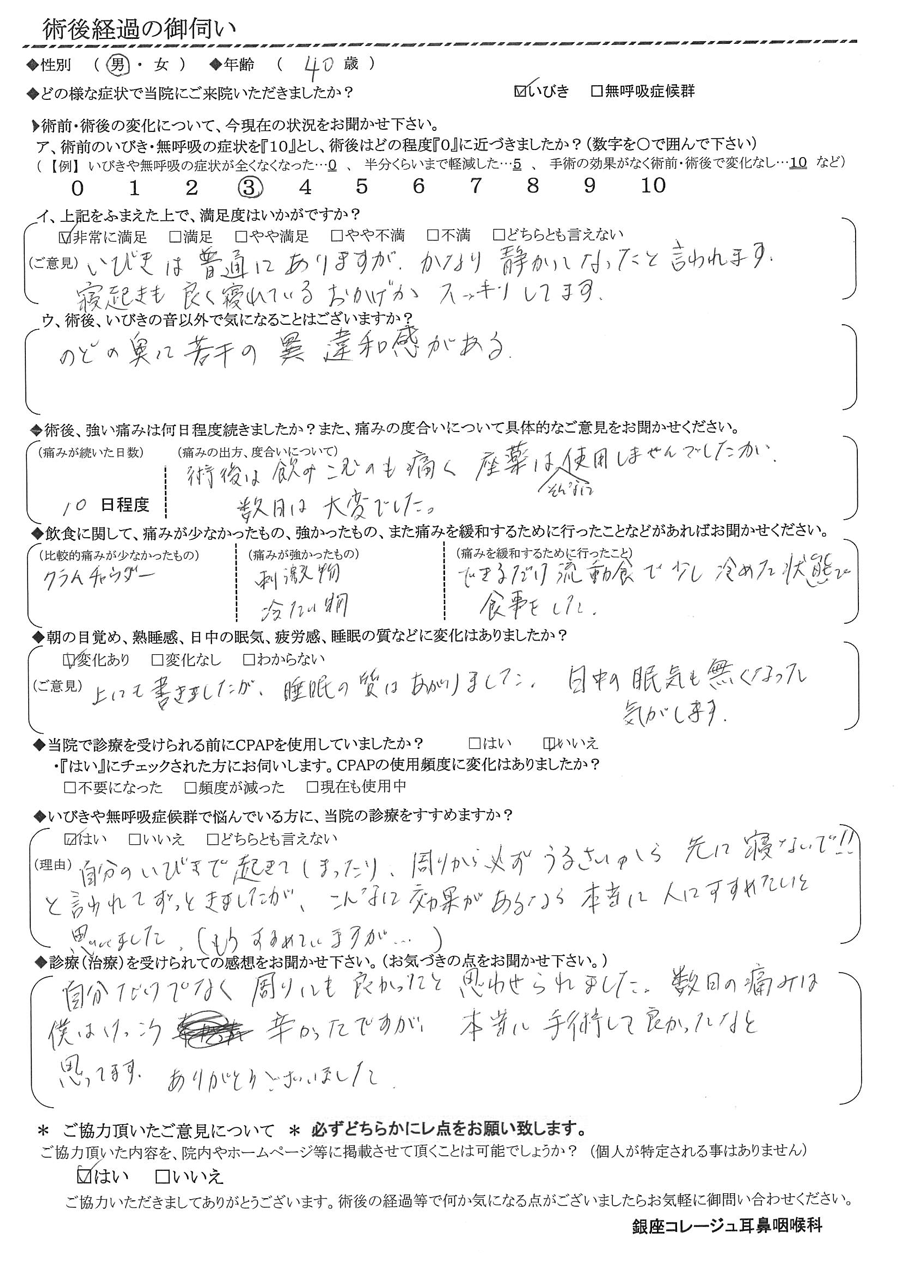 術後経過の御伺い
◆性別 ( 男 ・ 女 ) ◆年齢 ( 40 歳 )
◆どの様な症状で当院にご来院いただきましたか? ☑いびき □無呼吸症候群
◆術前・術後の変化について、今現在の状況をお聞かせ下さい。
ア、術前のいびき・無呼吸の症状を『10』とし、術後はどの程度『0』に近づきましたか?(数字を〇で囲んで下さい)
(【例】いびきや無呼吸の症状が全くなくなった…0 、 半分くらいまで軽減した…5 、 手術の効果がなく術前・術後で変化なし…10 など)
0 1 2 ③ 4 5 6 7 8 9 10
イ、上記をふまえた上で、満足度はいかがですか?
☑非常に満足 □満足 □やや満足 □やや不満 □不満 □どちらとも言えない
(ご意見) いびきは普通にありますが、かなり静かになったと言われます。
寝起きも良く寝れているおかげかスッキリしてます。
ウ、術後、いびきの音以外で気になることはございますか?
のどの奥に若干の異違和感がある。
◆術後、強い痛みは何日程度続きましたか?また、痛みの度合いについて具体的なご意見をお聞かせください。
(痛みが続いた日数) (痛みの出方、度合いについて)
術後は飲みこむのも痛く 座薬は使用しませんでしたが、
そんなに
10 日程度 数日は大変でした。
◆飲食に関して、痛みが少なかったもの、強かったもの、また痛みを緩和するために行ったことなどがあればお聞かせください。
(比較的痛みが少なかったもの) (痛みが強かったもの) (痛みを緩和するために行ったこと)
クラムチャウダー 刺激物 できるだけ流動食で少し冷めた状態で
冷たい物 食事をした。
◆朝の目覚め、熟睡感、日中の眠気、疲労感、睡眠の質などに変化はありましたか?
☑変化あり □変化なし □わからない
(ご意見) 上にも書きましたが、睡眠の質はあがりました。日中の眠気も無くなった
気がします。
◆当院で診療を受けられる前にCPAPを使用していましたか? □はい ☑いいえ
・『はい』にチェックされた方にお伺いします。CPAPの使用頻度に変化はありましたか?
□不要になった □頻度が減った □現在も使用中
◆いびきや無呼吸症候群で悩んでいる方に、当院の診療をすすめますか?
☑はい □いいえ □どちらとも言えない
(理由) 自分のいびきで起きてしまったり、周りから必ずうるさいから先に寝ないで!!
と言われてずっときましたが、こんなに効果があるなら本当に人にすすめたいと
思いました。(もうすすめていますが…)
◆診療(治療)を受けられての感想をお聞かせ下さい。(お気づきの点をお聞かせ下さい。)
自分だけでなく周りにも良かったと思わせられました。数日の痛みは
僕はけっこう 辛かったですが、本当に手術して良かったなと
思ってます。ありがとうございました。
* ご協力頂いたご意見について * 必ずどちらかにレ点をお願い致します。
ご協力頂いた内容を、院内やホームページ等に掲載させて頂くことは可能でしょうか? (個人が特定される事はありません)
☑はい □いいえ
ご協力いただきましてありがとうございます。術後の経過等で何か気になる点がございましたらお気軽に御問い合わせください。
銀座コレージュ耳鼻咽喉科